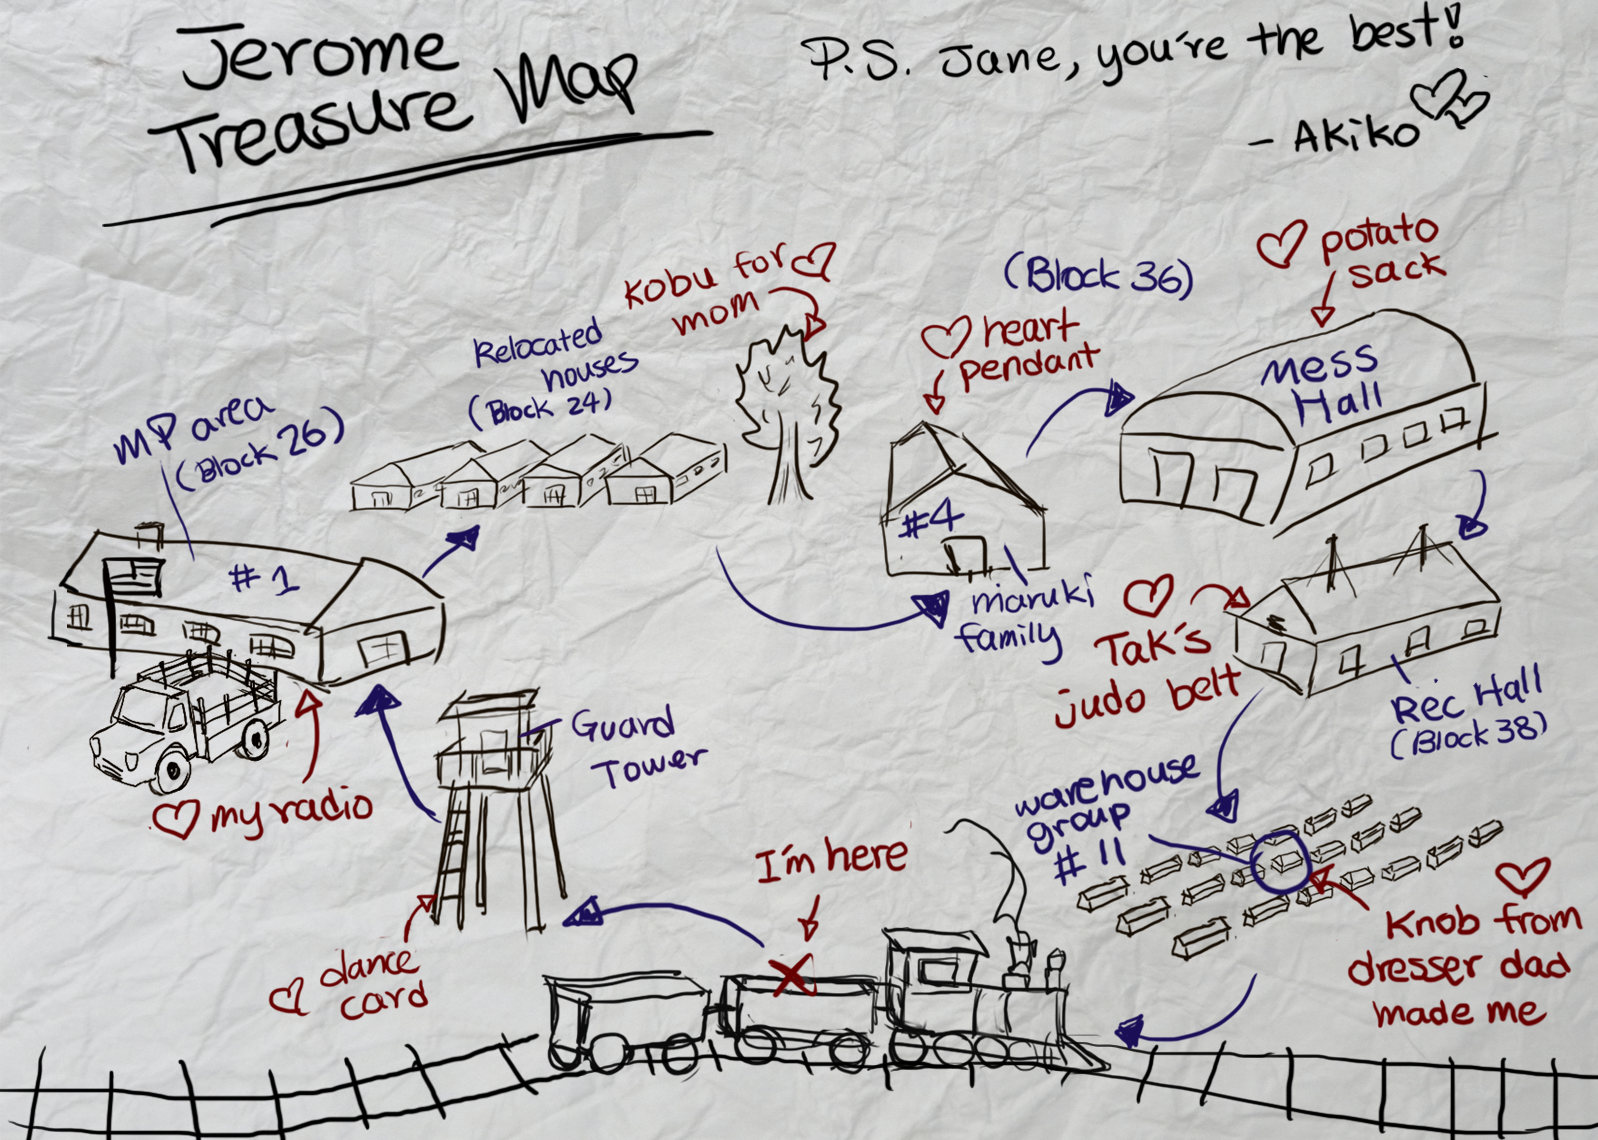 Jerome
Treasure Map
P.S. Jane, you're the best!
- Akiko
Kobu for
mom
(Block 36)
potato
sack
heart
pendant
Mess
Hall
Relocated
houses
(Block 24)
MP area
(Block 26)
#1
#4
maruki
family
Tak's
judo belt
Rec Hall
(Block 38)
Guard
Tower
my radio
warehouse
group
#11
I'm here
dance
card
Knob from
dresser dad
made me